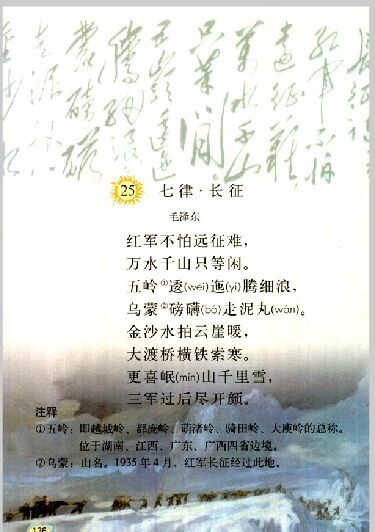 25 七律·长征
毛泽东
红军不怕远征难，
万水千山只等闲。
五岭①逶(wēi)迤(yí)腾细浪，
乌蒙②磅礴(bó)走泥丸(wán)。
金沙水拍云崖暖，
大渡桥横铁索寒。
更喜岷(mín)山千里雪，
三军过后尽开颜。
注释
①五岭：即越城岭、都庞岭、萌渚岭、骑田岭、大庾岭的总称。
位于湖南、江西、广东、广西四省边境。
②乌蒙：山名。1935年4月，红军长征经过此地。
136